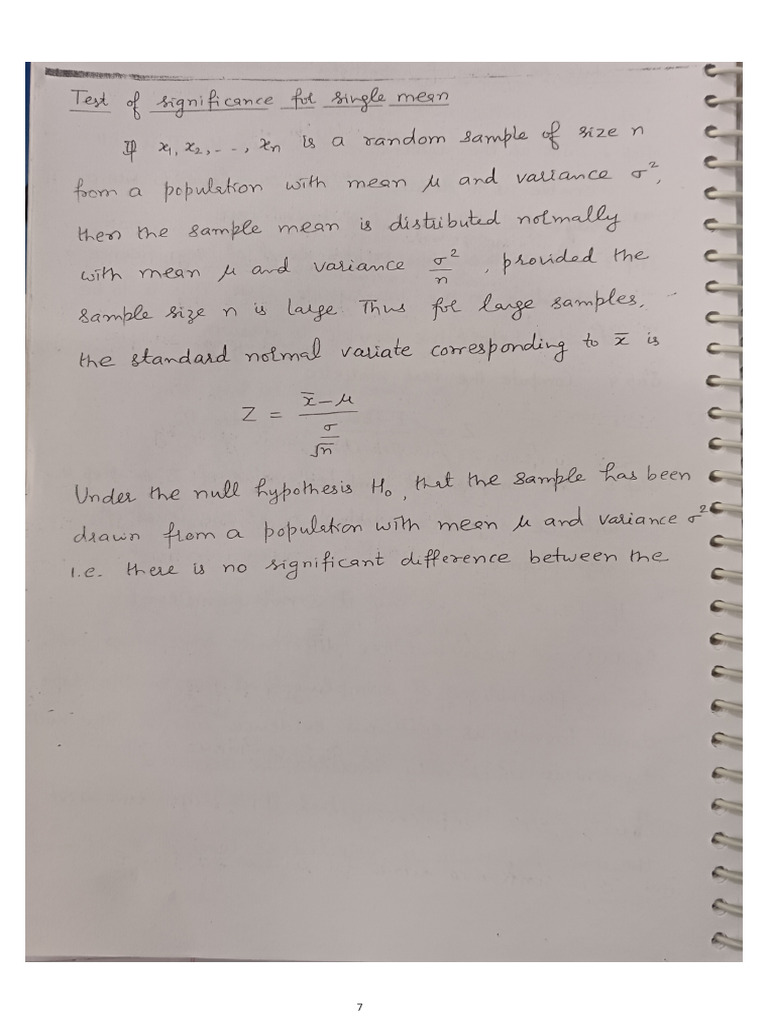 Test of significance for single mean
If x₁, x₂, - - , xₙ is a random sample of size n
from a population with mean μ and variance σ²,
then the sample mean is distributed normally
with mean μ and variance σ²/n , provided the
sample size n is large. Thus for large samples,
the standard normal variate corresponding to x̄ is
Z = (x̄ – μ) / (σ/√n)
Under the null hypothesis H₀, that the sample has been
drawn from a population with mean μ and variance σ²
i.e. there is no significant difference between the
7